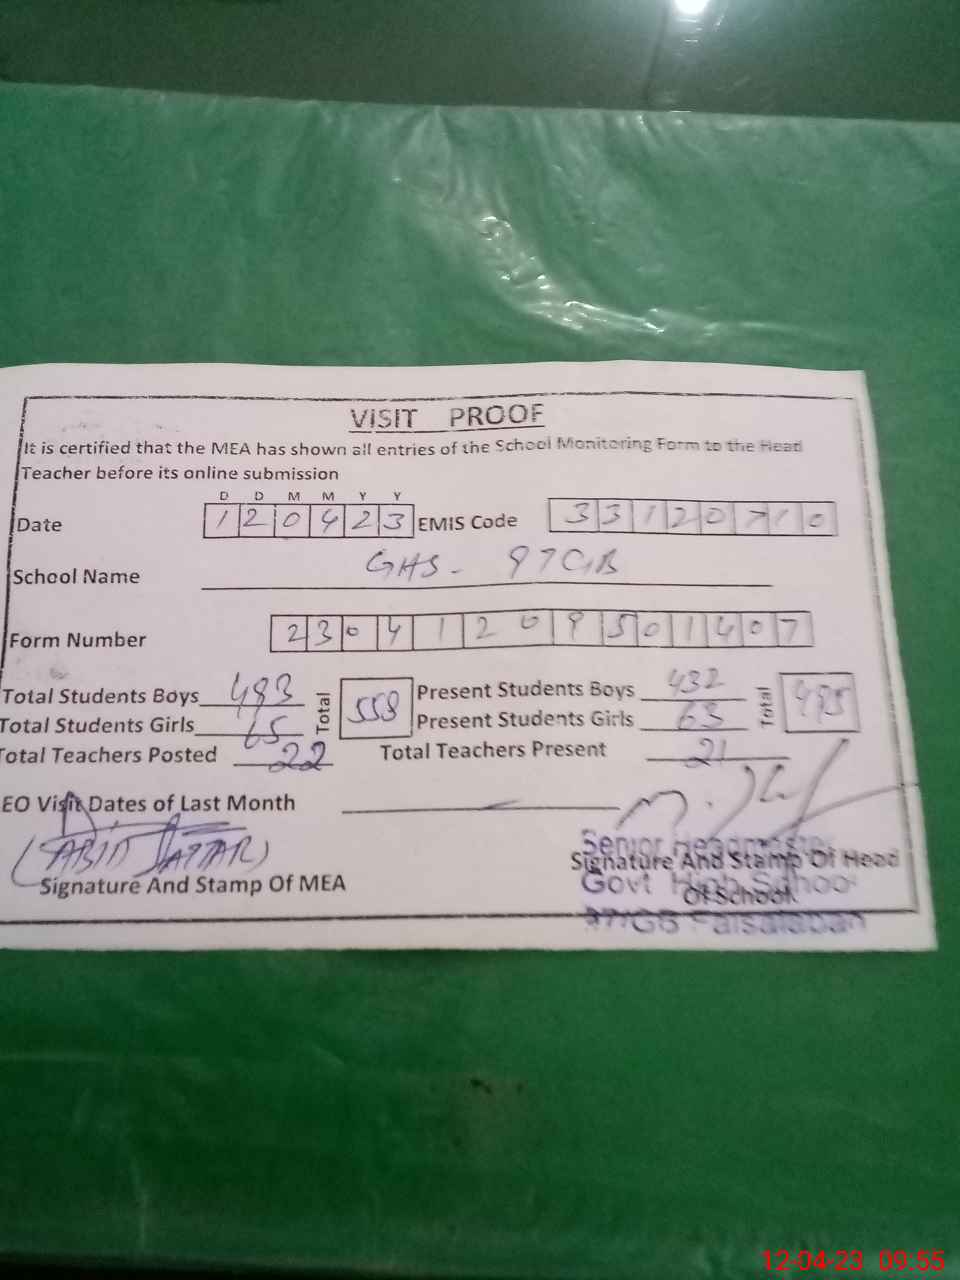 VISIT PROOF
It is certified that the MEA has shown all entries of the School Monitoring Form to the Head
Teacher before its online submission
D D M M Y Y
Date 1 2 0 4 2 3 EMIS Code 3 3 1 2 0 7 1 0
School Name GHS- 97GB
Form Number 2 3 0 4 1 2 0 9 5 0 1 4 0 7
Total Students Boys 493 Total 558 Present Students Boys 432 Total 495
Total Students Girls 65 Present Students Girls 63
Total Teachers Posted 22 Total Teachers Present 21
EO Visit Dates of Last Month
(ABID SATTAR)
Senior Headmaster
Signature And Stamp Of MEA Signature And Stamp Of Head
Of School
Govt High School
97/GB Faisalabad
12-04-23 09:55